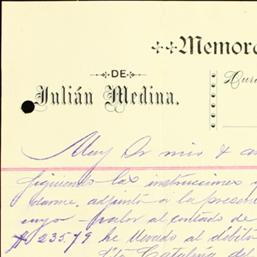 Memora
DE
Julián Medina.
Muy Sr mio & a
siguiendo las instrucciones
darme, adjunto a la presen
suyo - valor al contado de
$ 235.79 he llevado al débito
Sta Catalina del